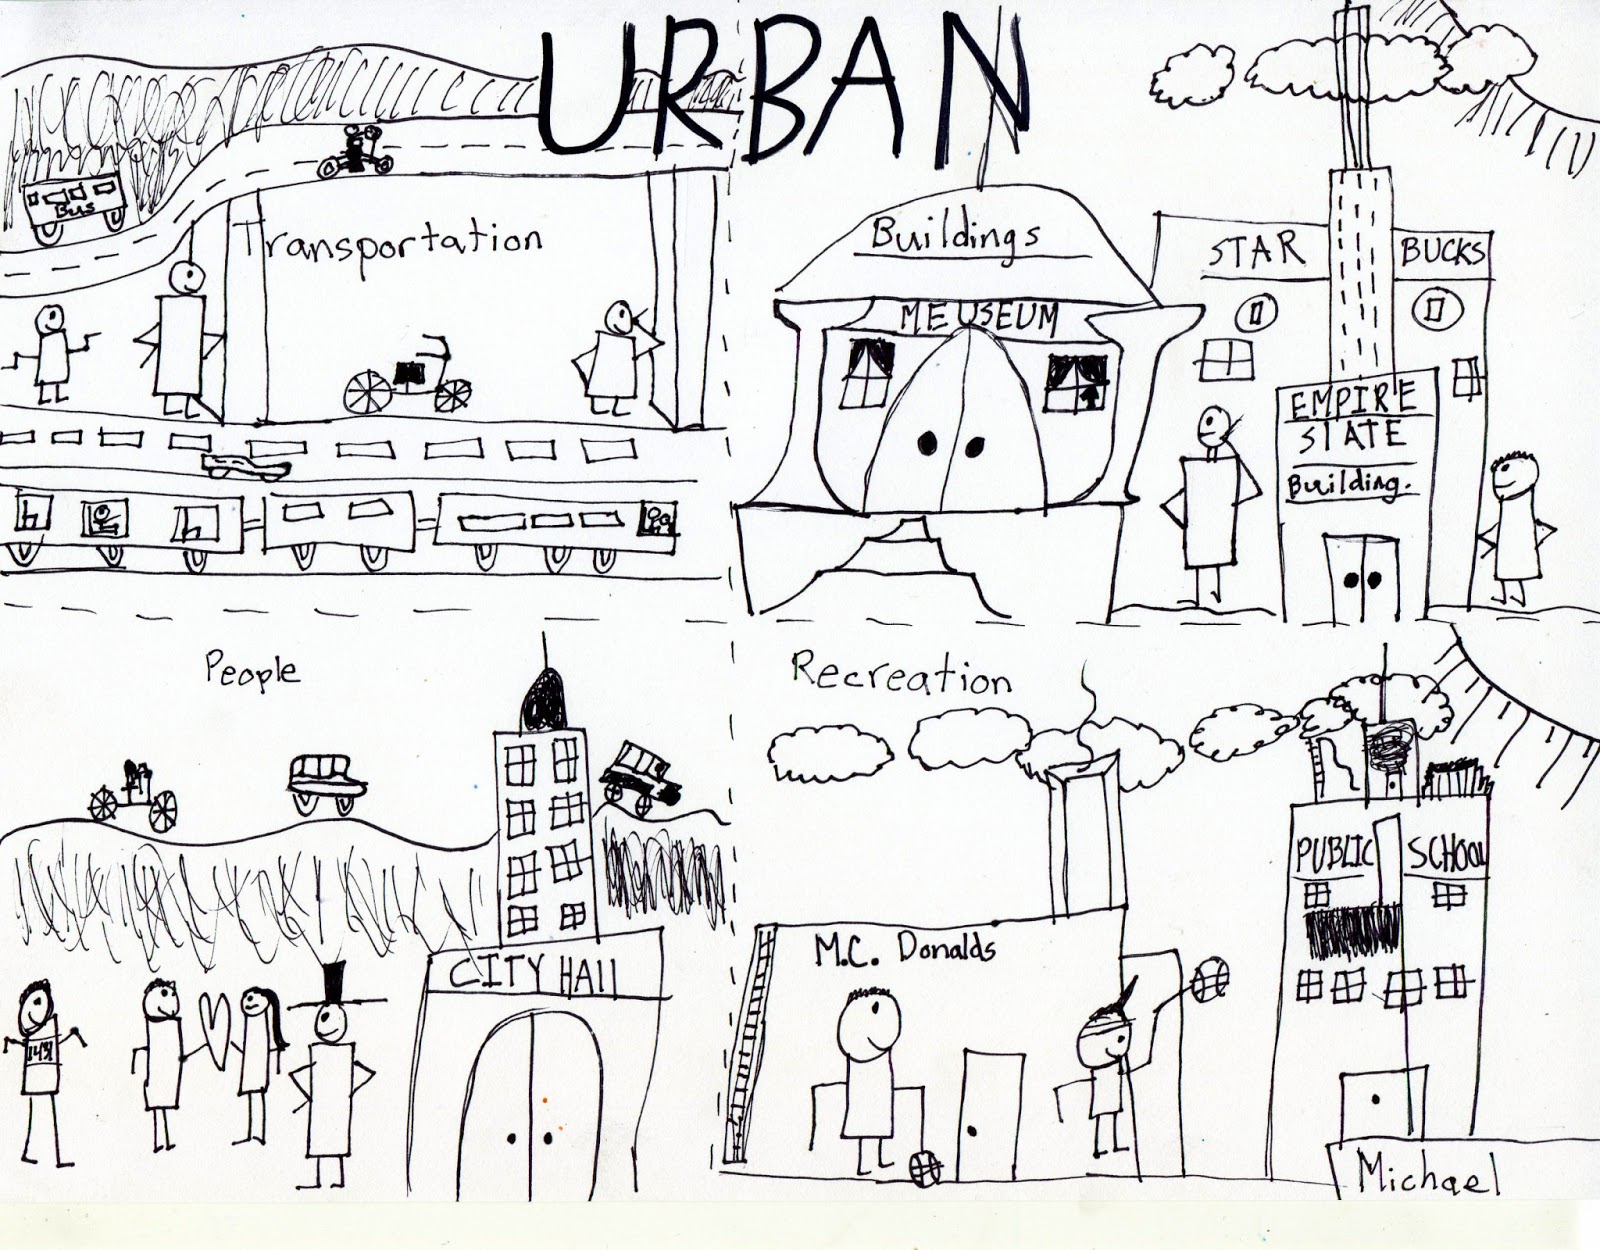 URBAN
Bus
Transportation
Buildings
MEUSEUM
STAR BUCKS
EMPIRE
STATE
Building.
People
CITY HAll
Recreation
M.C. Donalds
PUBLIC SCHOOL
Michael